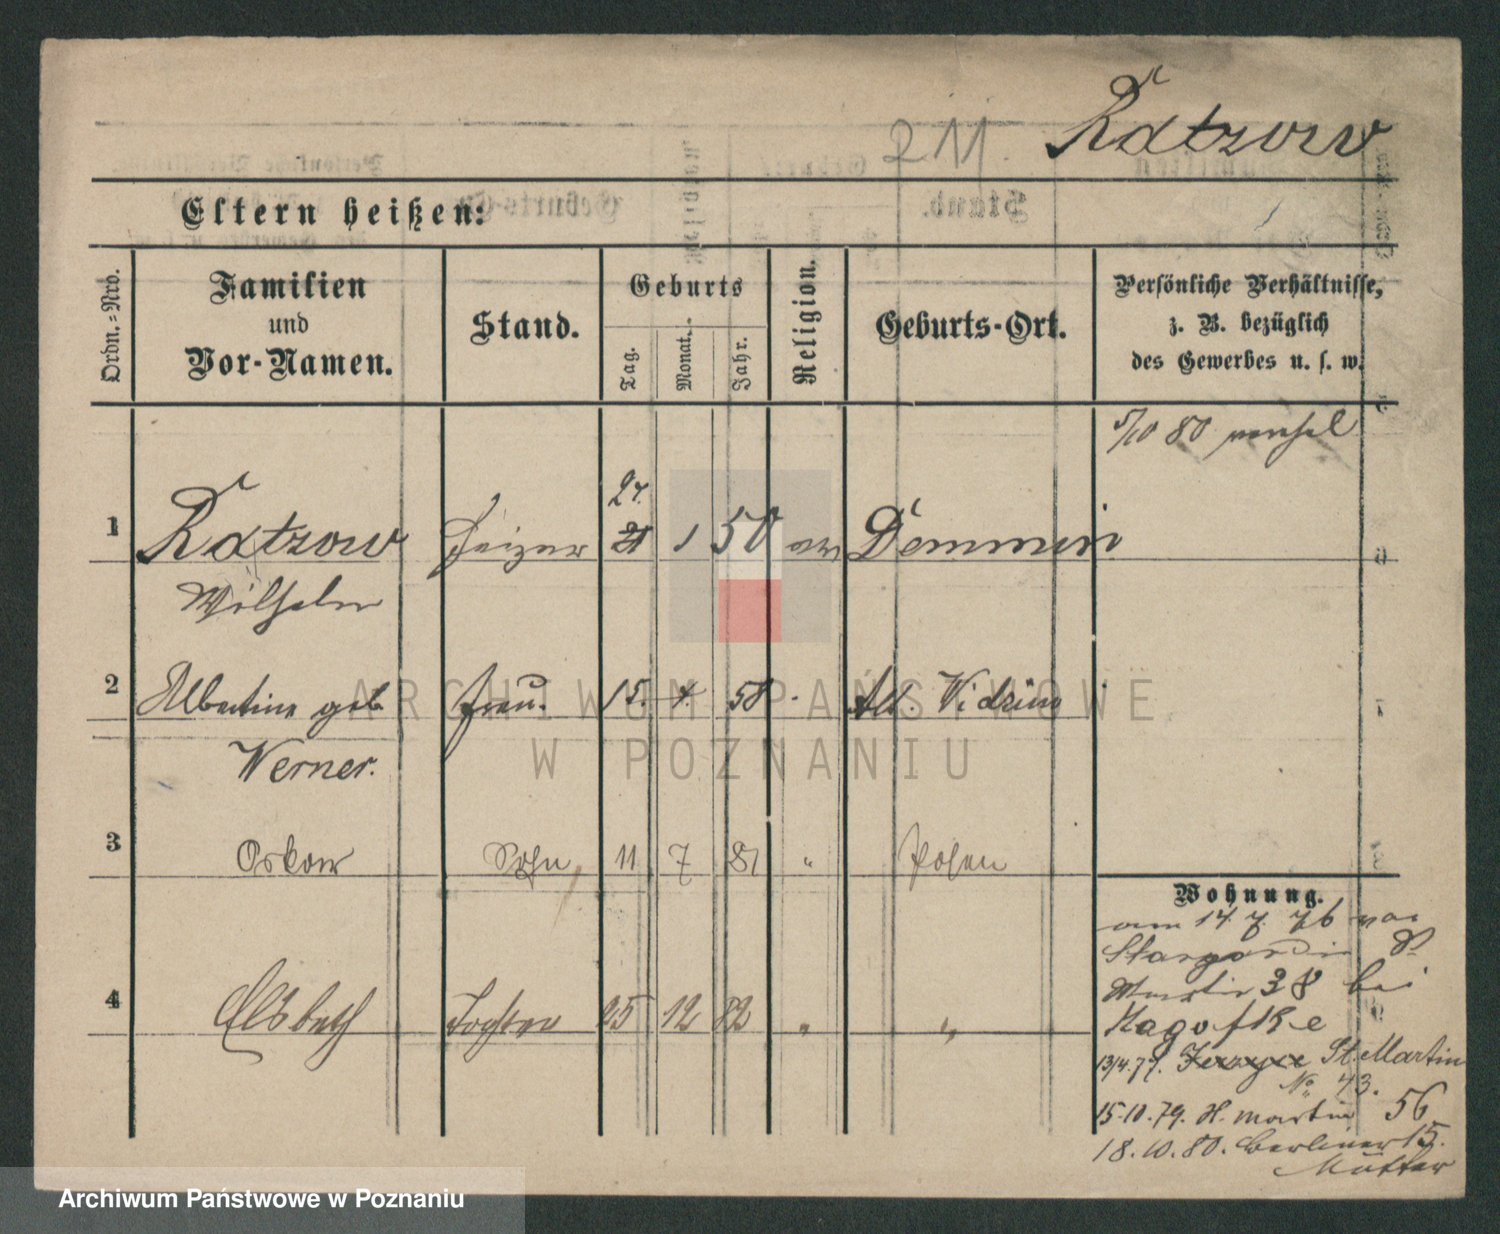 Ratzow
Eltern heißen:
Ordn.-Nro.
Familien
und
Vor-Namen.
Stand.
Geburts
Tag.
Monat.
Jahr.
Religion.
Geburts-Ort.
Persönliche Verhältnisse,
z. B. bezüglich
des Gewerbes u. s. w.
5/10 80
27.
1 Ratzow Heizer 21 1 50 ev Demmin
Wilhelm
2 Albertine geb. Frau. 15. 4. 58 Alt.
Werner.
3 Oskar Sohn 11 7 81 " Posen
4 Elsbeth Tochter 25 12 82 " "
Wohnung.
am 14. 7. 76 von
Stargard in St
Martin 38 bei
13/4. 77. Jerzyce St. Martin
No 43.
15.10.79. St. Martin 56
18.10.80. Berliner 15.
Mütter
ARCHIWUM PAŃSTWOWE
W POZNANIU
Archiwum Państwowe w Poznaniu